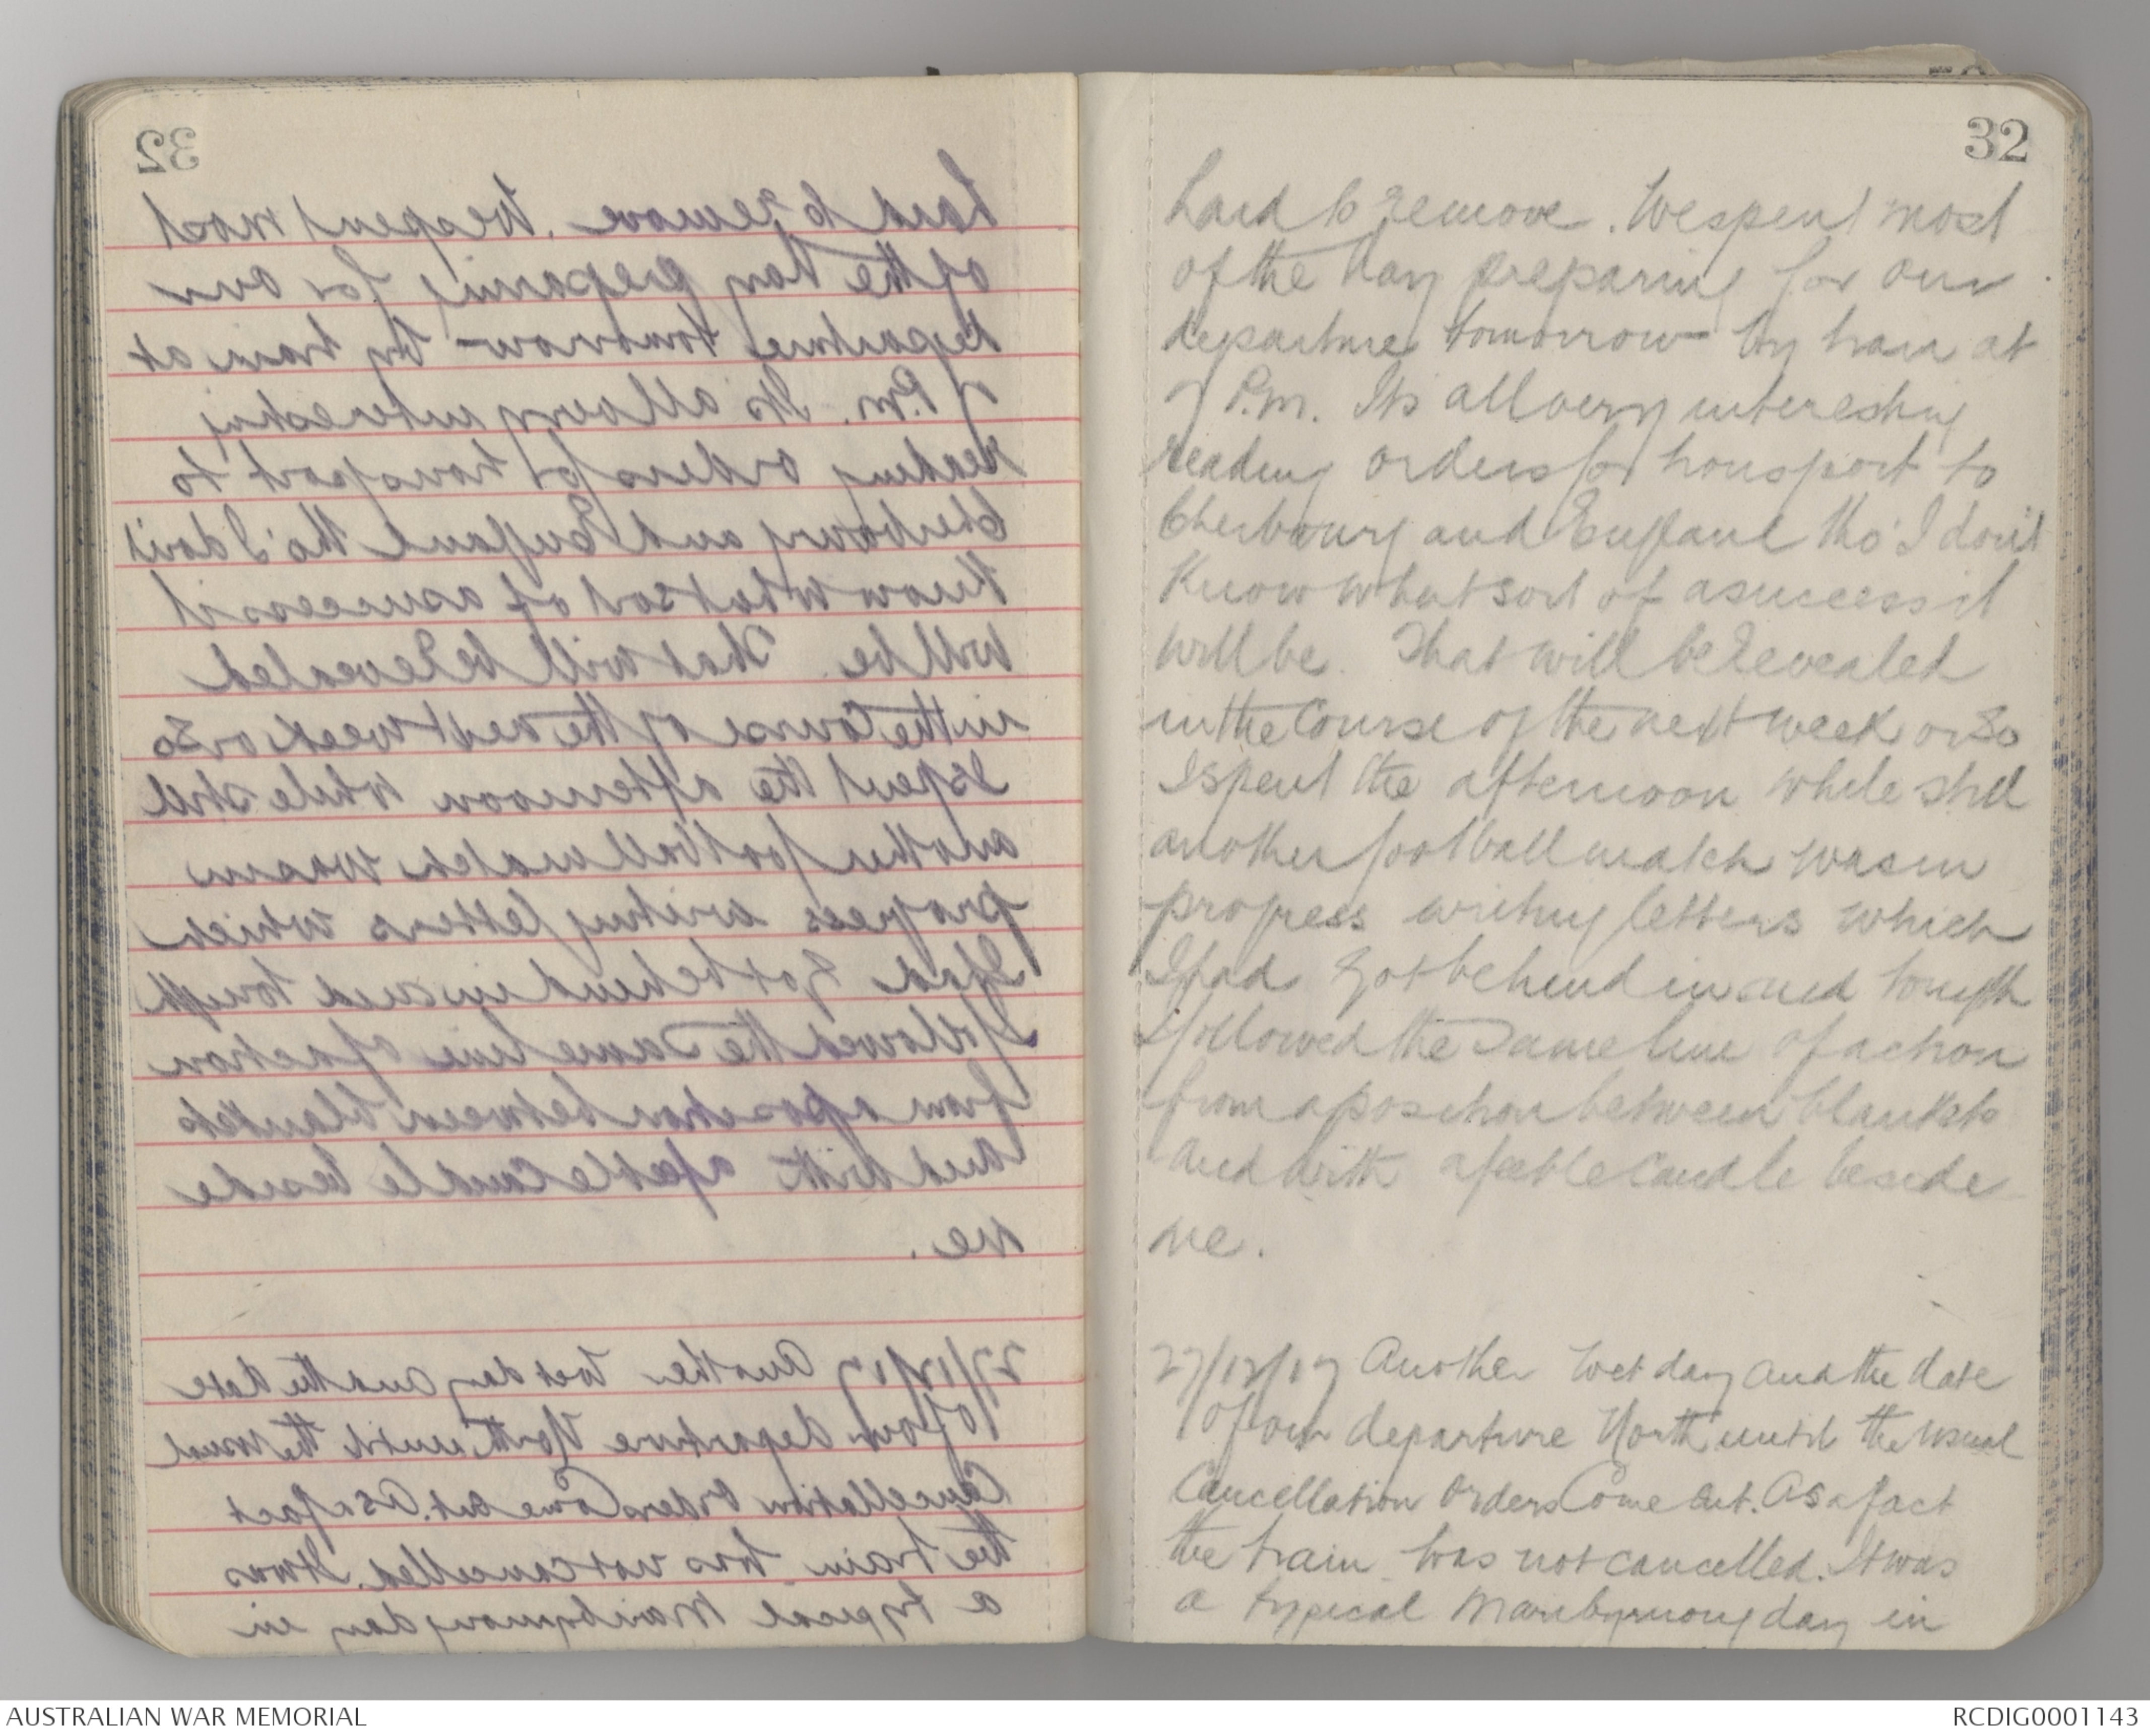 32
hard to remove. We spent most
of the day preparing for our
departure tomorrow by train at
7 P.m. Its all very interesting
reading orders for transport to
Cherbourg and England tho' I don't
know what sort of a success it
will be. That will be revealed
in the Course of the next week or so
I spent the afternoon while still
another football match was in
progress writing letters which
I had got behind in and tonight
I followed the same line of action
from a position between blankets
and with a feeble candle beside
me.
27/12/17 Another wet day and the date
of our departure North until the usual
Cancellation orders Come out. As a fact
the train was not cancelled. It was
a typical Maribyrnong day in
AUSTRALIAN WAR MEMORIAL
RCDIG0001143